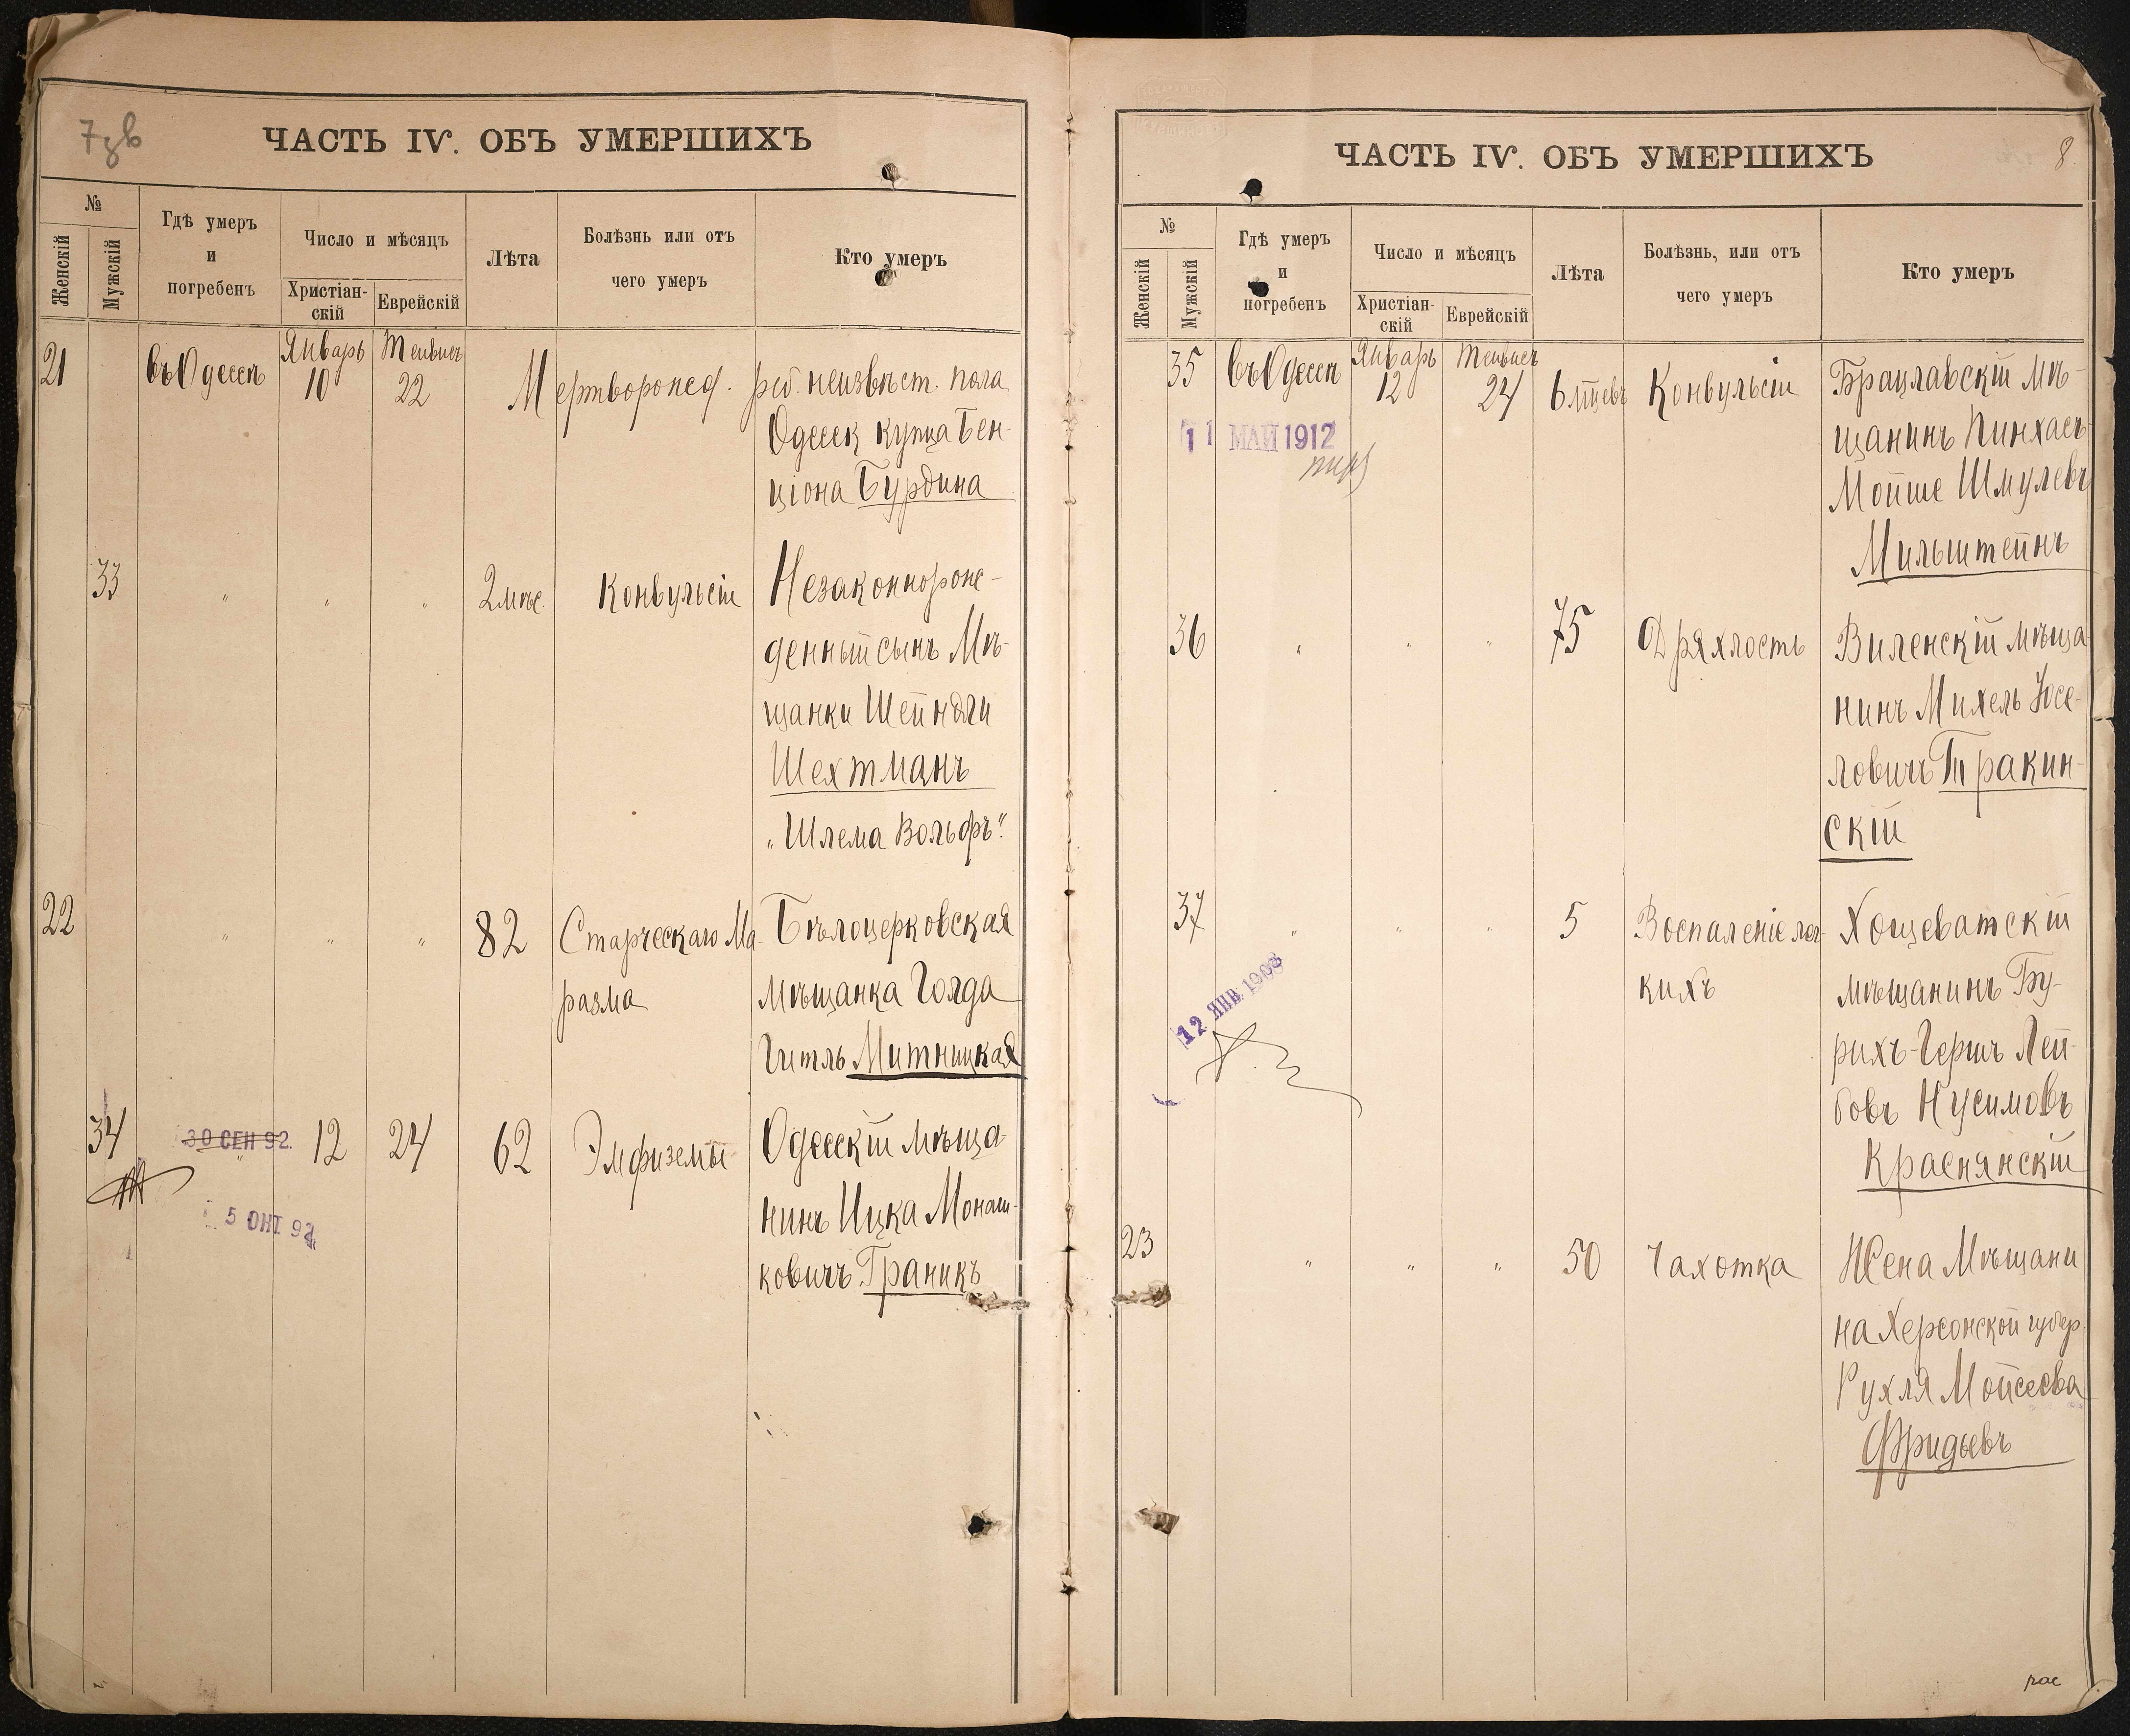 7 зв
ЧАСТЬ IV. ОБЪ УМЕРШИХЪ
№
Женскій
Мужскій
Гдѣ умеръ
и
погребенъ
Число и мѣсяцъ
Христіан-
скій
Еврейскій
Лѣта
Болѣзнь или отъ
чего умеръ
Кто умеръ
21 въ Одессѣ Январь 10 Тейвисъ 22 Мертворожд. реб. неизвѣст. пола
Одесск купца Бен-
ціона Бурдина
33 " " " 2 мѣс. Конвульсіи Незаконнорож-
денный сынъ Мѣ-
щанки Шейндли
Шехтманъ
"Шлема Вольфъ".
22 " " " 82 Старческаго Ма- Бѣлоцерковская
разма мѣщанка Голда
Гитль Митницкая
34 " 12 24 62 Эмфиземы Одесскій мѣща-
30 СЕН 92.
нинъ Ицка Монаш-
5 ОКТ 92
ковичъ Граникъ
ЧАСТЬ IV. ОБЪ УМЕРШИХЪ
8
№
Женскій
Мужскій
Гдѣ умеръ
и
погребенъ
Число и мѣсяцъ
Христіан-
скій
Еврейскій
Лѣта
Болѣзнь, или отъ
чего умеръ
Кто умеръ
35 въ Одессѣ Январь 12 Тейвисъ 24 6 мцевъ Конвульсіи Брацлавскій мѣ-
11 МАЙ 1912
щанинъ Пинхасъ
Мойше Шмулевъ
Мильштейнъ
36 " " " 75 Дряхлость Виленскій мѣща
нинъ Михель Іосе-
ловичъ Тракин-
скій
37 " " " 5 Воспаленіе лег- Хощеватскій
кихъ мѣщанинъ Бу-
12 ЯНВ. 1908
рихъ-Гершъ Лей-
бовъ Нусимовъ
Краснянскій
23 " " " 50 Чахотка Жена Мѣщани
на Херсонской губер.
Рухля Мойсеева
Фридьевъ
рас